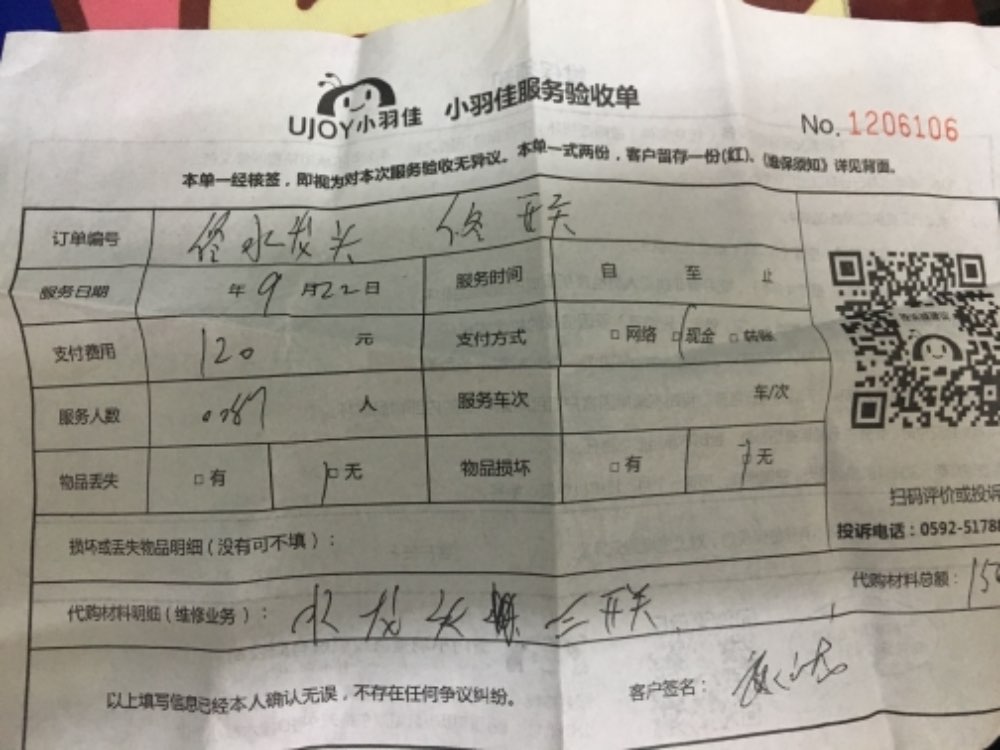 UJOY小羽佳 小羽佳服务验收单
No. 1206106
本单一经核签，即视为对本次服务验收无异议。本单一式两份，客户留存一份(红)、《维保须知》详见背面。
订单编号 修水龙头 修开关
服务日期 年9月22日 服务时间 自 至 止
支付费用 120 元 支付方式 □网络 □现金 □转账
服务人数 人 服务车次 车/次
物品丢失 □有 □无 物品损坏 □有 □无
扫码评价或投诉
损坏或丢失物品明细（没有可不填）： 投诉电话：0592-5178
代购材料总额：
代购材料明细（维修业务）： 水龙头 三开关
以上填写信息已经本人确认无误，不存在任何争议纠纷。 客户签名：